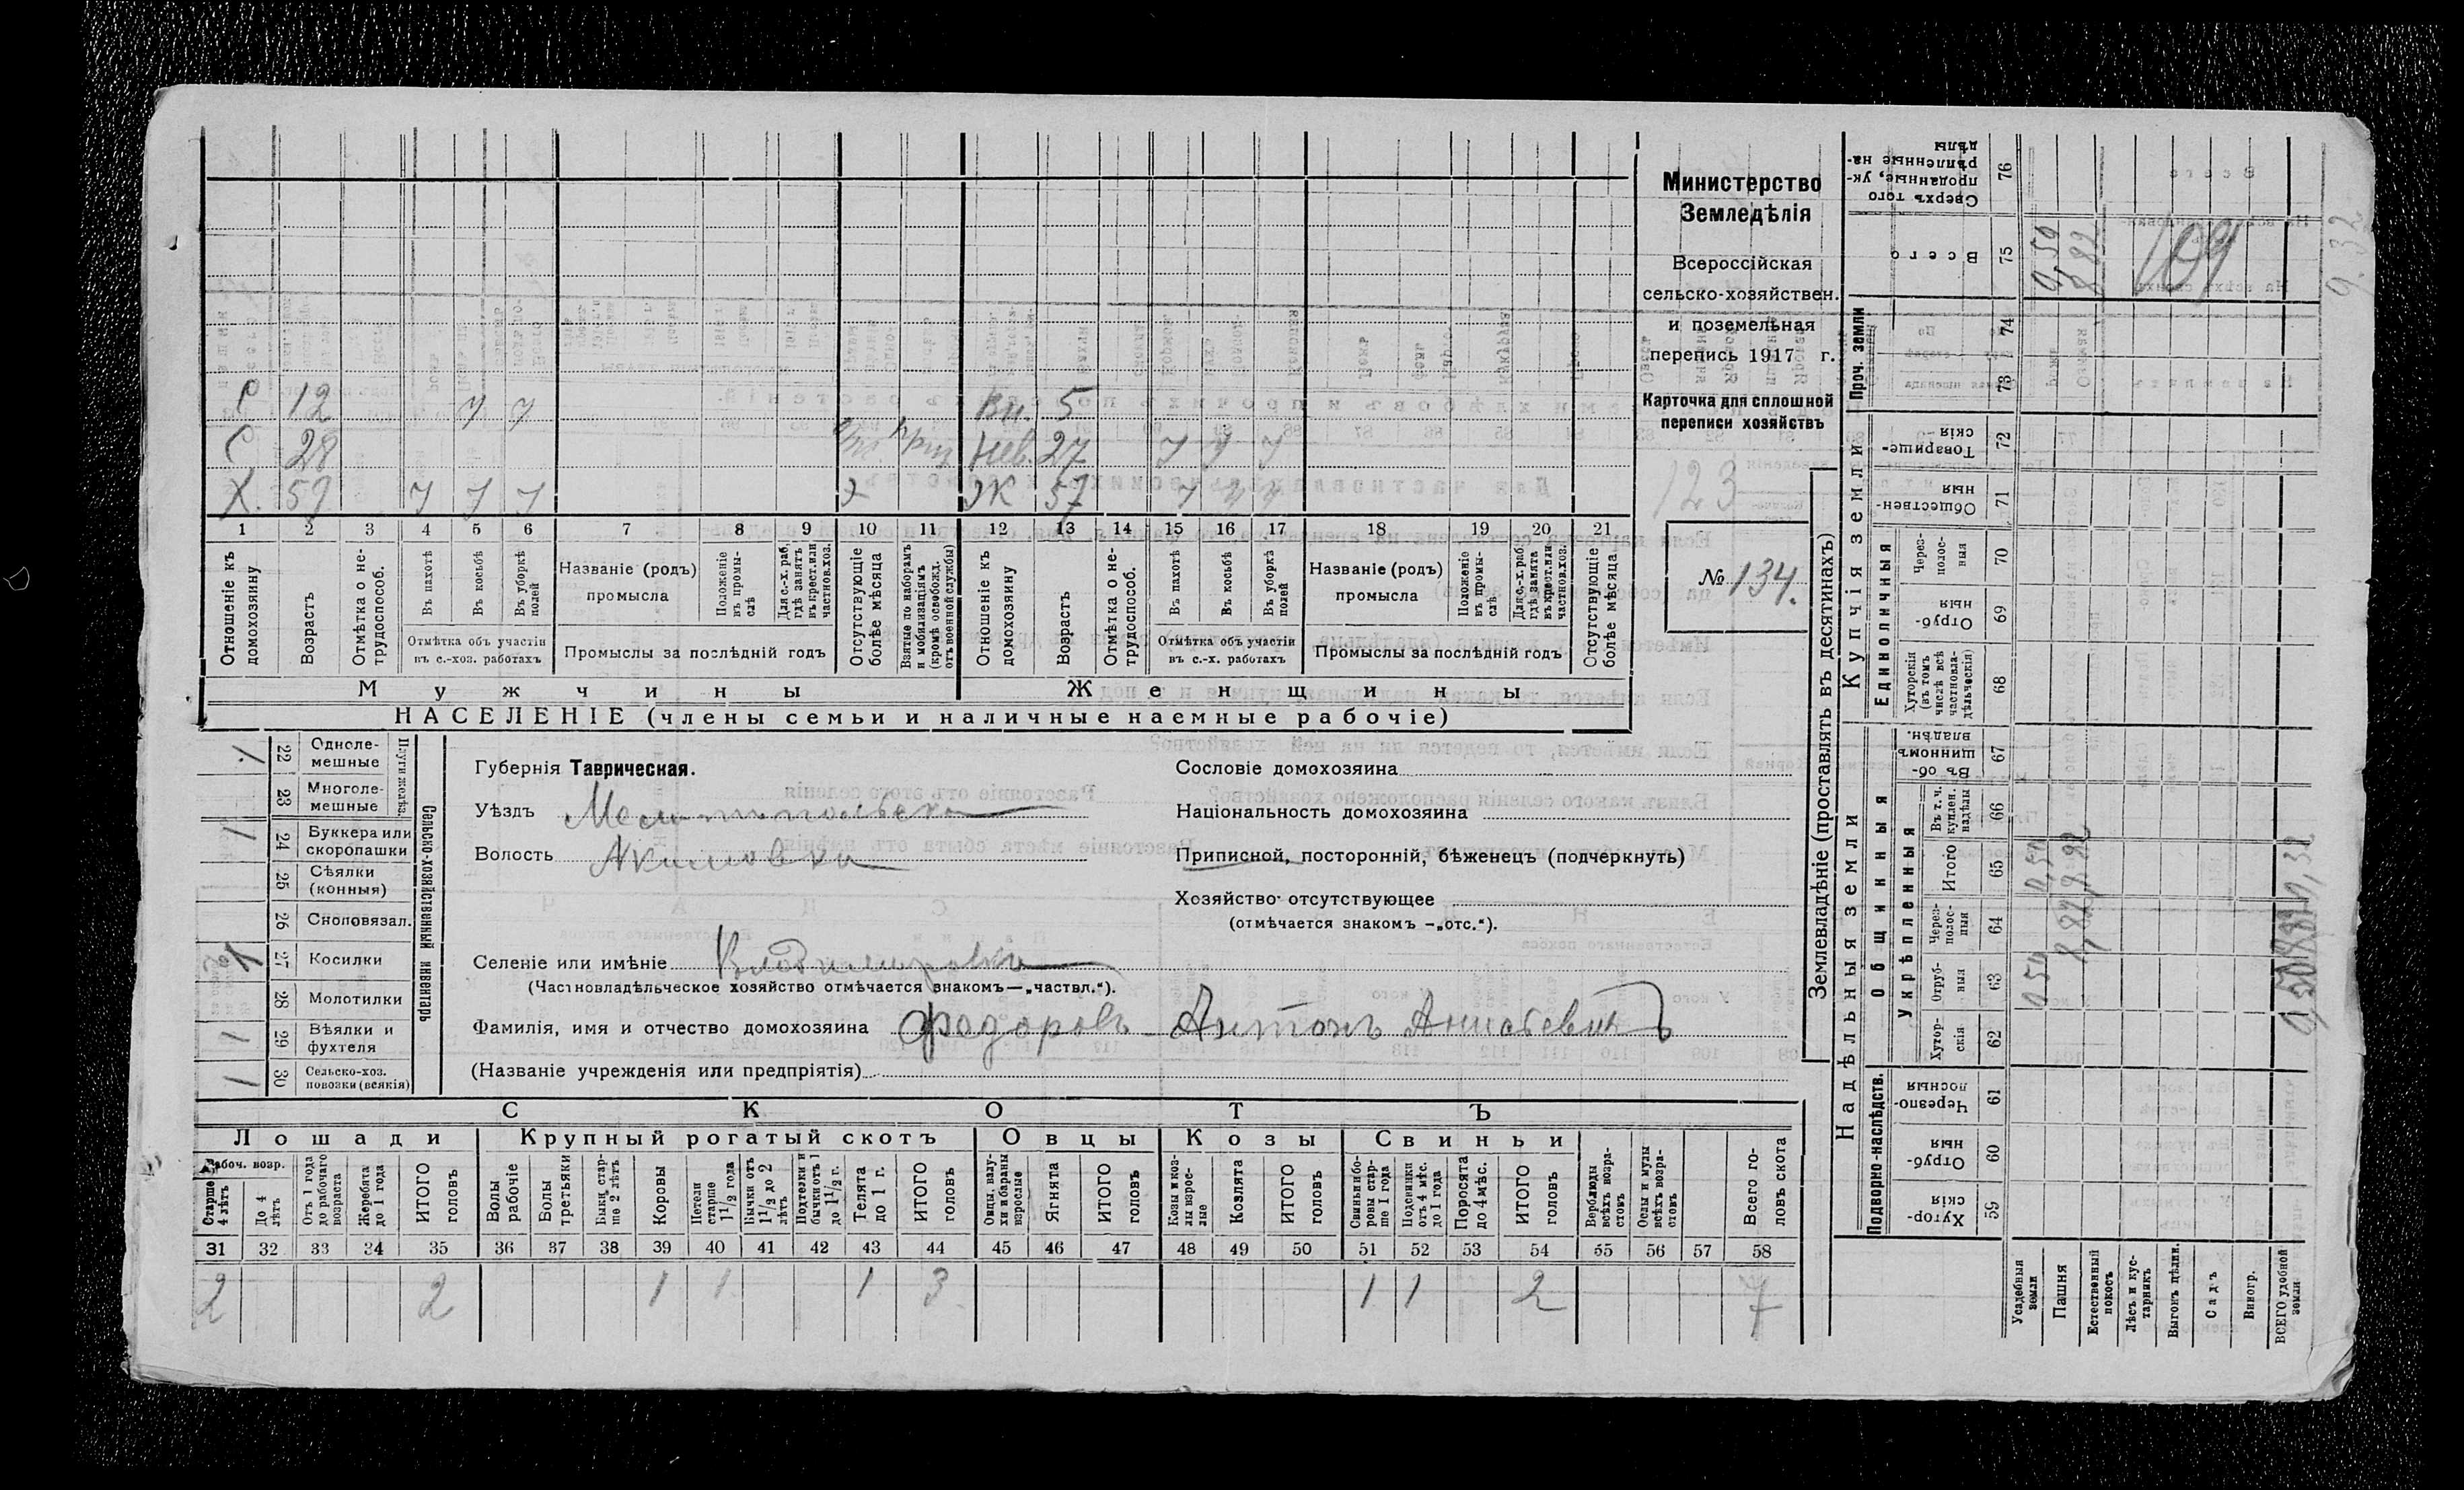 С 12 у у Вн. 5
С 28 Нев. 27 у у у
Х. 59 у у у ЭК 57 у у у
1 2 3 4 5 6 7 8 9 10 11 12 13 14 15 16 17 18 19 20 21
Отношеніе къ домохозяину
Возрастъ
Отмѣтка о не-трудоспособ.
Въ пахотѣ
Въ косьбѣ
Въ уборкѣ полей
Отмѣтка объ участіи въ с.-хоз. работахъ
Названіе (родъ) промысла
Положеніе въ промы-слѣ
Для с.-х. раб. гдѣ занятъ въ крест. или частнов. хоз.
Промыслы за послѣдній годъ
Отсутствующіе болѣе мѣсяца
Взятые по наборамъ и мобилизаціямъ (кромѣ освобожд. отъ военной службы)
Отношеніе къ домохозяину
Возрастъ
Отмѣтка о не-трудоспособ.
Въ пахотѣ
Въ косьбѣ
Въ уборкѣ полей
Отмѣтка объ участіи въ с.-х. работахъ
Названіе (родъ) промысла
Положеніе въ промы-слѣ
Для с.-х. раб. гдѣ занята въ крест. или частнов. хоз.
Промыслы за послѣдній годъ
Отсутствующіе болѣе мѣсяца
Мужчины
Женщины
НАСЕЛЕНІЕ (члены семьи и наличные наемные рабочіе)
Министерство
Земледѣлія
Всероссійская
сельско-хозяйствен.
и поземельная
перепись 1917 г.
Карточка для сплошной
переписи хозяйствъ
123
№ 134.
Сельско-хозяйственный инвентарь
Плуги желѣз.
22 Одноле-мешные
23 Многоле-мешные
1 24 Буккера или скоропашки
25 Сѣялки (конныя)
26 Сноповязал.
27 Косилки
28 Молотилки
1 29 Вѣялки и фухтеля
1 30 Сельско-хоз. повозки (всякія)
Губернія Таврическая.
Уѣздъ Мелитопольск
Волость Акимовка
Сословіе домохозяина
Національность домохозяина
Приписной, посторонній, бѣженецъ (подчеркнуть)
Хозяйство отсутствующее
(отмѣчается знакомъ —„отс.“).
Селеніе или имѣніе Владимировка
(Частновладѣльческое хозяйство отмѣчается знакомъ—„частвл.“).
Фамилія, имя и отчество домохозяина Федоровъ Антонъ
(Названіе учрежденія или предпріятія)
СКОТЪ
Лошади Крупный рогатый скотъ Овцы Козы Свиньи
Рабоч. возр.
Старше 4 лѣтъ
До 4 лѣтъ
Отъ 1 года до рабочаго возраста
Жеребята до 1 года
ИТОГО головъ
Волы рабочіе
Волы третьяки
Быки стар-ше 2 лѣтъ
Коровы
Нетели старше 1 1/2 года
Быки отъ 1 1/2 до 2 лѣтъ
Подтелки и бычки отъ 1 до 1 1/2 г.
Телята до 1 г.
ИТОГО головъ
Овцы, валу-хи и бараны взрослые
Ягнята
ИТОГО головъ
Козы и коз-лы взрос-лые
Козлята
ИТОГО головъ
Свиньи и бо-ровы стар-ше 1 года
Подсвинки отъ 4 мѣс. до 1 года
Поросята до 4 мѣс.
ИТОГО головъ
Верблюды всѣхъ возра-стовъ
Ослы и мулы всѣхъ возра-стовъ
Всего го-ловъ скота
31 32 33 34 35 36 37 38 39 40 41 42 43 44 45 46 47 48 49 50 51 52 53 54 55 56 57 58
2 2 1 1 1 3 1 1 2 7
Землевладѣніе (проставлять въ десятинахъ)
Надѣльныя земли
Купчія земли
Проч. земли
Подворно-наслѣдств.
Общинныя
Укрѣпленныя
Единоличныя
Сверхъ того проданные, ук-рѣпленные на-дѣлы 76
Всего 75 0,50 8,82
74
73
Товарище-скія 72
Обществен-ныя 71
Через-полос-ныя 70
Отруб-ныя 69
Хуторскія (въ томъ числѣ всѣ частновла-дѣльческія) 68
Въ об-щинномъ владѣн. 67
Въ т. ч. куплен. надѣлы 66
Итого 65 0,50 8,82
Через-полос-ныя 64 8,82
Отруб-ныя 63 0,50
Хутор-скія 62
Черезпо-лосныя 61
Отруб-ныя 60
Хутор-скія 59
Усадебныя земли
Пашня
Естественный покосъ
Лѣсъ и кус-тарникъ
Выгонъ цѣлин.
Садъ
Виногр.
ВСЕГО удобной земли
109
9.32